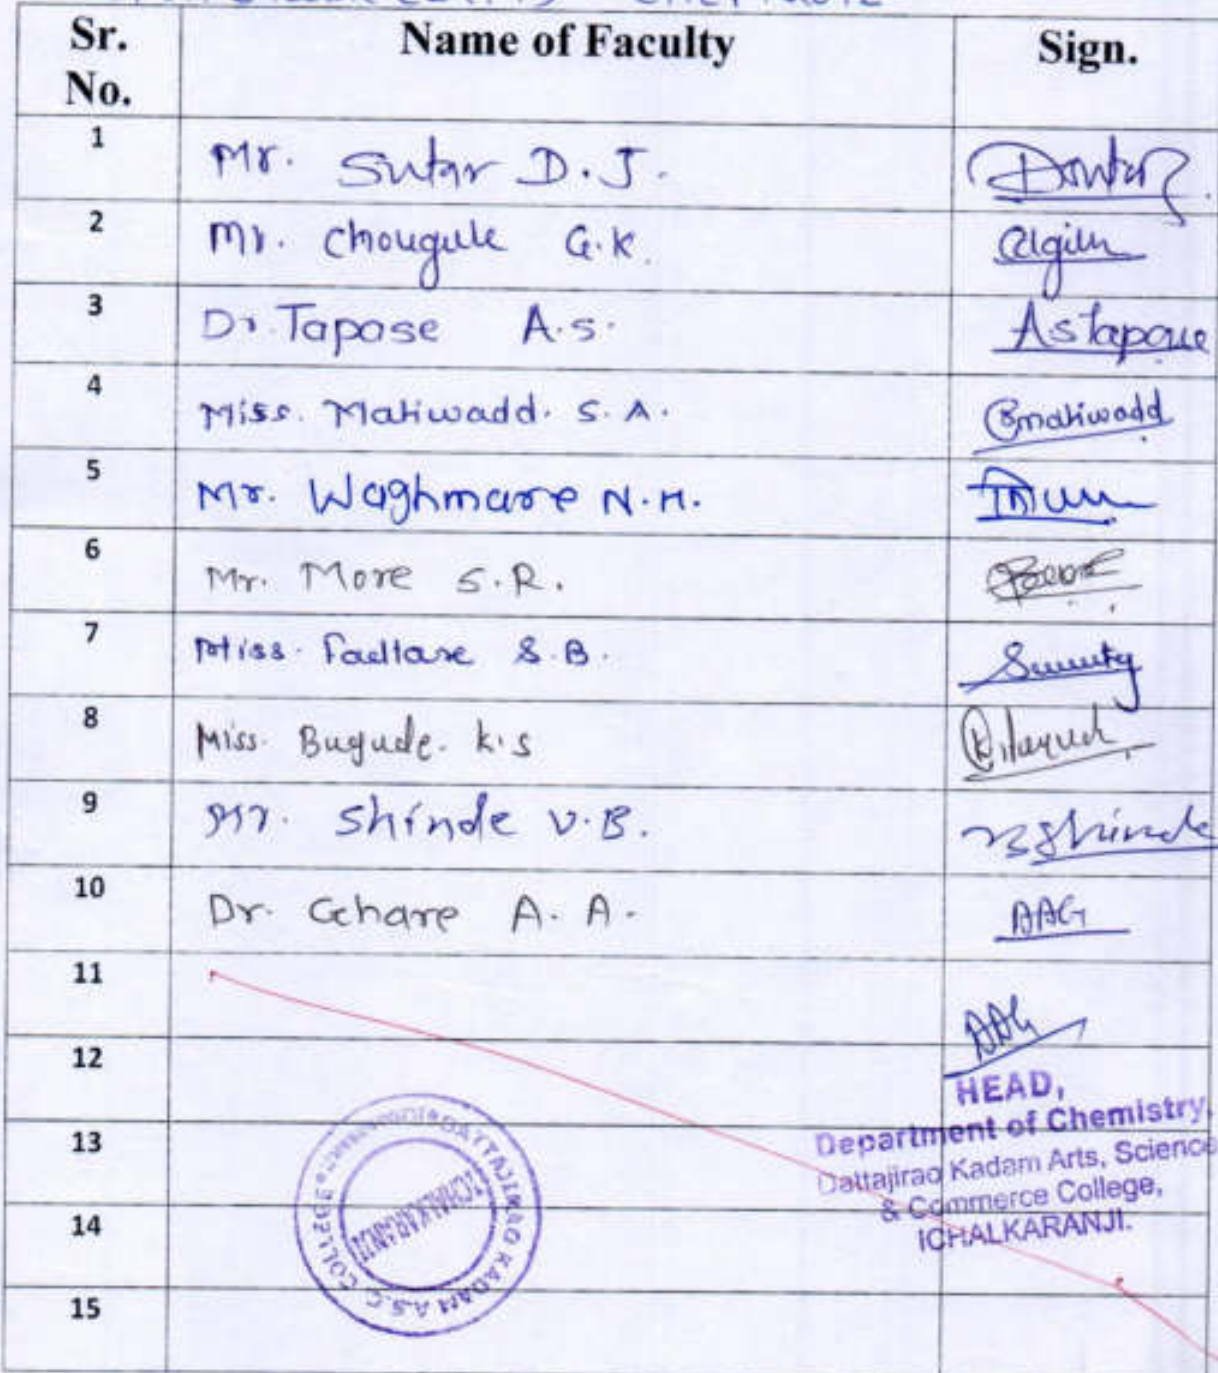 Sr. No. Name of Faculty Sign.
1 Mr. Sutar D. J.
2 Mr. Chougule G.K.
3 Dr. Tapase A.S. Astapase
4 Miss. Maliwadd. S. A. Smaliwadd
5 Mr. Waghmare N.M.
6 Mr. More S.R.
7 Miss. S.B.
8 Miss. Bugude. K.S
9 Mr. Shinde V.B. VBShinde
10 Dr. Ghare A. A. AAG
11
AAG
12
HEAD,
Department of Chemistry,
13
Dattajirao Kadam Arts, Science
& Commerce College,
14
ICHALKARANJI.
DATTAJIRAO KADAM A.S.C. COLLEGE
ICHALKARANJI
15